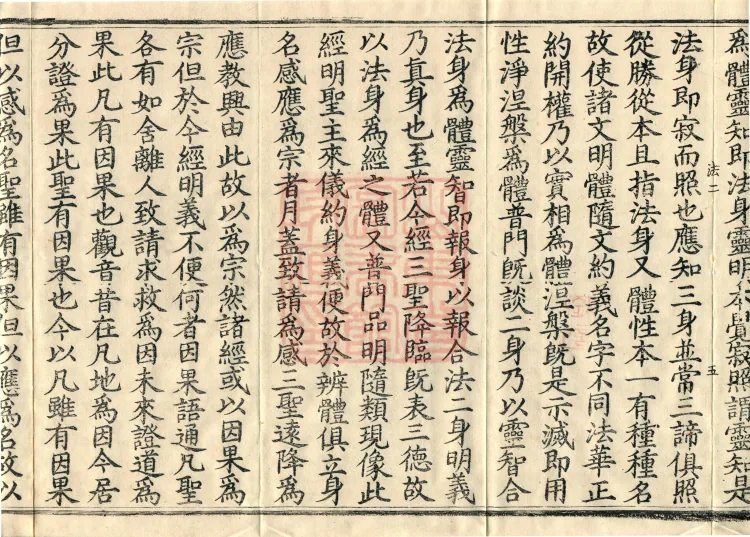 爲體靈知即法身靈明本覺寂照謂靈知是
法二 五
法身即寂而照也應知三身並常三諦俱照
從勝從本且指法身又體性本一有種種名
故使諸文明體隨文約義名字不同法華正
約開權乃以實相爲體涅槃旣是示滅即用
性淨涅槃爲體普門旣談二身乃以靈智合
法身爲體靈智即報身以報合法二身明義
乃眞身也至若今經三聖降臨旣表三德故
以法身爲經之體又普門品明隨類現像此
經明聖主來儀約身義便故於辨體俱立身
名感應爲宗者月蓋致請爲感三聖遠降爲
應教興由此故以爲宗然諸經或以因果爲
宗但於今經明義不便何者因果語通凡聖
各有如舍離人致請求救爲因未來證道爲
果此凡有因果也觀音昔在凡地爲因今居
分證爲果此聖有因果也今以凡雖有因果
但以感爲名聖雖有因果但以應爲名故以